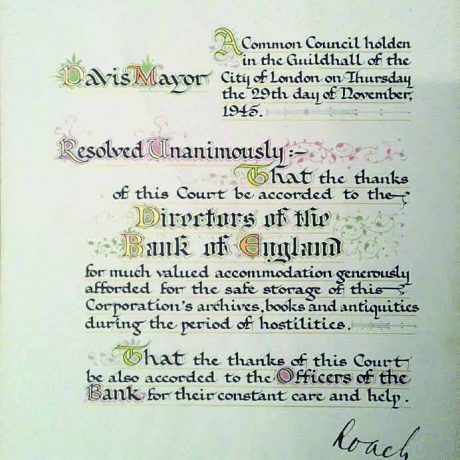 A Common Council holden
in the Guildhall of the
Davis Mayor City of London on Thursday
the 29th day of November,
1945.
Resolved Unanimously :-
That the thanks
of this Court be accorded to the
Directors of the
Bank of England
for much valued accommodation generously
afforded for the safe storage of this
Corporation's archives, books and antiquities
during the period of hostilities.
That the thanks of this Court
be also accorded to the Officers of the
Bank for their constant care and help.
Roach